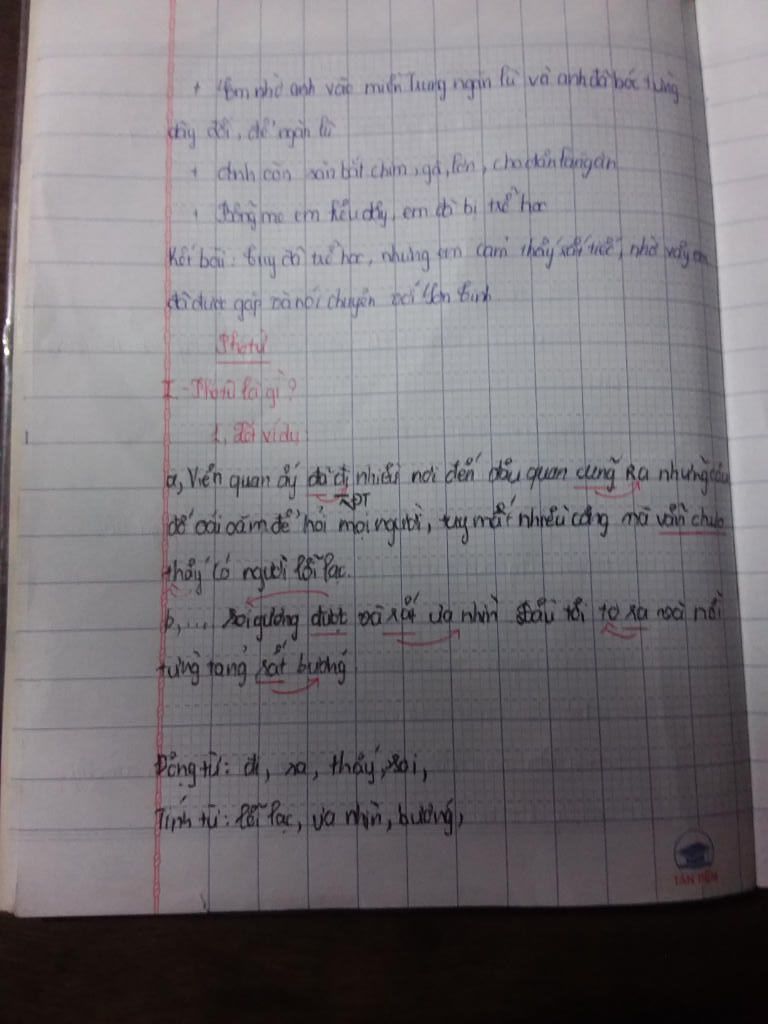 + Em nhờ anh vào miền Trung ngăn lũ và anh đã bốc từng
dãy đồi, để ngăn lũ
+ Anh còn săn bắt chim, gà, lợn, cho dân làng ăn
+ Bỗng mẹ em kêu dậy, em đã bị trễ học
Kết bài: Tuy đã trễ học, nhưng em cảm thấy nhờ vậy em
đã được gặp và nói chuyện với Sơn Tinh
Phó từ
I - Phó từ là gì?
1, Xét ví dụ
a, Viên quan ấy đã đi nhiều nơi đến đâu quan cũng ra những câu
ĐT
đố oái oăm để hỏi mọi người, tuy mất nhiều công mà vẫn chưa
thấy có người lỗi lạc.
b, ... soi gương được và rất ưa nhìn Đầu tôi to ra và nổi
từng tảng rất bướng
Động từ: đi, ra, thấy, soi,
Tính từ: lỗi lạc, ưa nhìn, bướng,
TÂN TIẾN